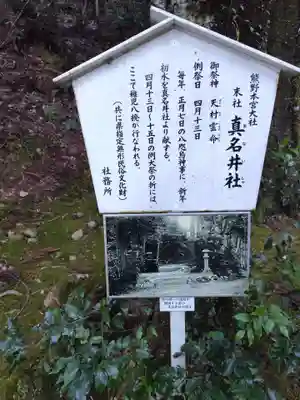 熊野本宮大社
末社 真名井社
御祭神 天村雲命
例祭日 四月十三日
毎年、正月七日の八咫烏神事に、新年
初水を真名井社より献する。
四月十三日～十五日の例大祭の折には、
ここで稚児八撥が行なわれる。
(共に県指定無形民俗文化財)
社務所